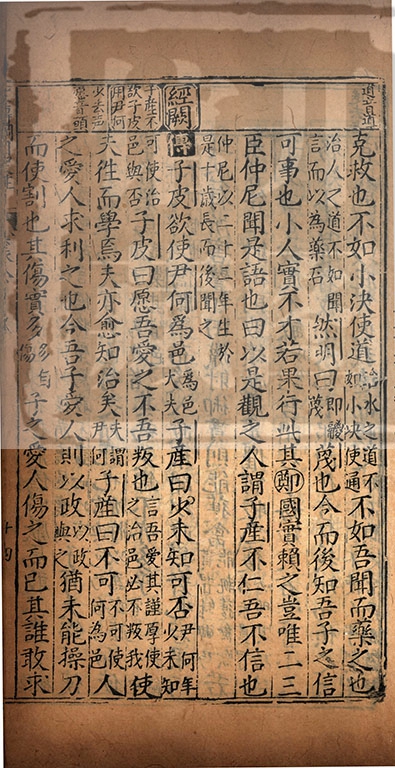 道音道
克救也不如小決使道治水之道不如小決使通不如吾聞而藥之也
治人之道不如聞言而以為藥石然明曰即鬷蔑蔑也今而後知吾子之信
可事也小人實不才若果行此其鄭國實賴之豈唯二三
臣仲尼聞是語也曰以是觀之人謂子產不仁吾不信也
仲尼以二十二年生於是十歲長而後聞之
經闕
傳子皮欲使尹何爲邑爲邑大夫子產曰少未知可否尹何年少未知
子產不欲子皮用尹何
可使治邑與否子皮曰愿吾愛之不吾叛也言吾愛其謹厚使之治邑必不叛我使
夫往而學焉夫亦愈知治矣夫謂尹何子產曰不可不可使人何為邑人
之愛人求利之也今吾子愛人則以政以政與之猶未能操刀
而使割也其傷實多多自傷子之愛人傷之而已其誰敢求
十四